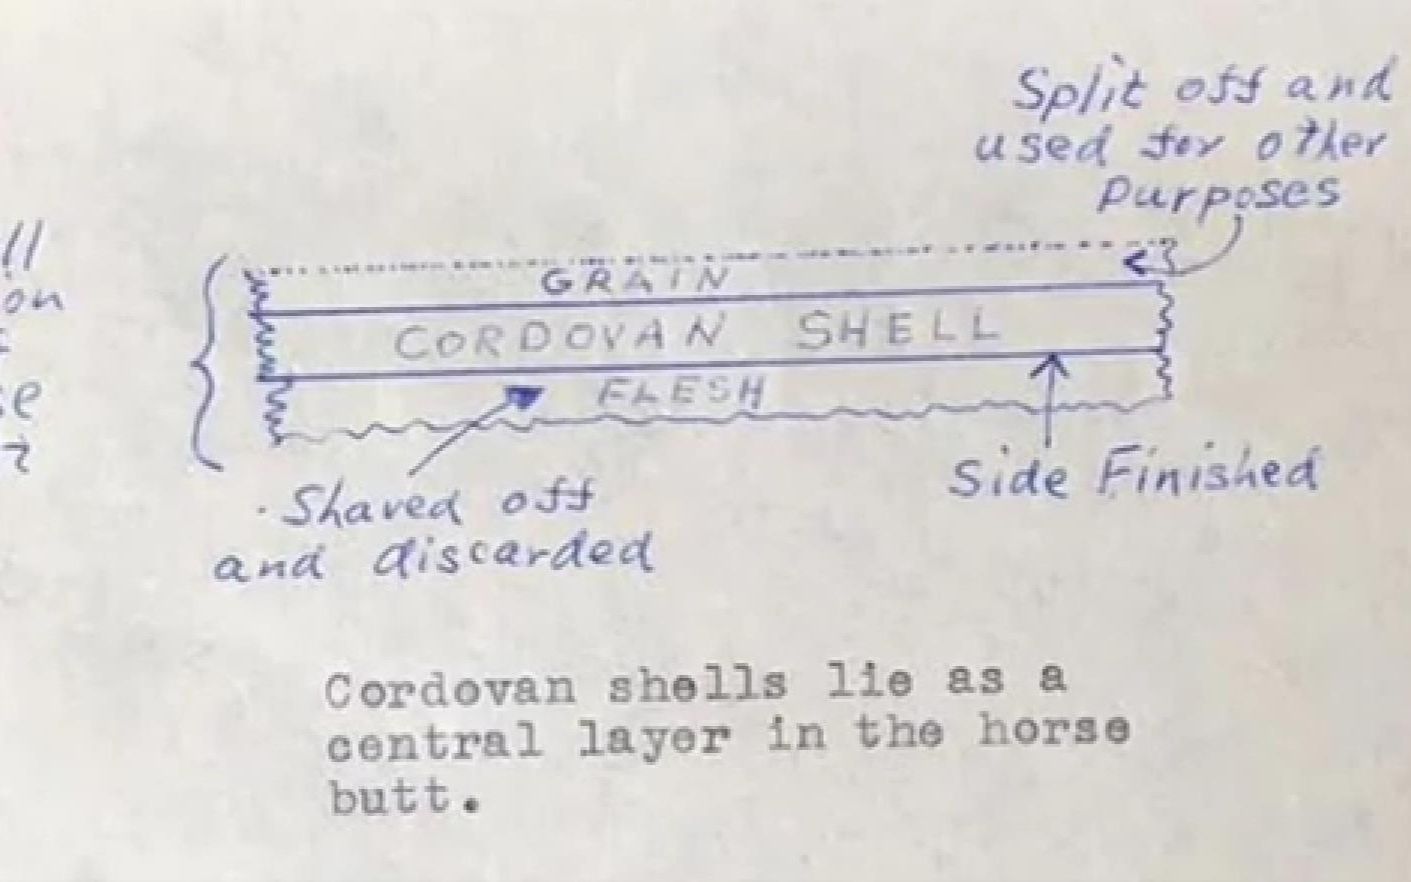 Split off and
used for other
purposes
ll
on
GRAIN
CORDOVAN SHELL
FLESH
e
Side Finished
Shaved off
and discarded
Cordovan shells lie as a
central layer in the horse
butt.